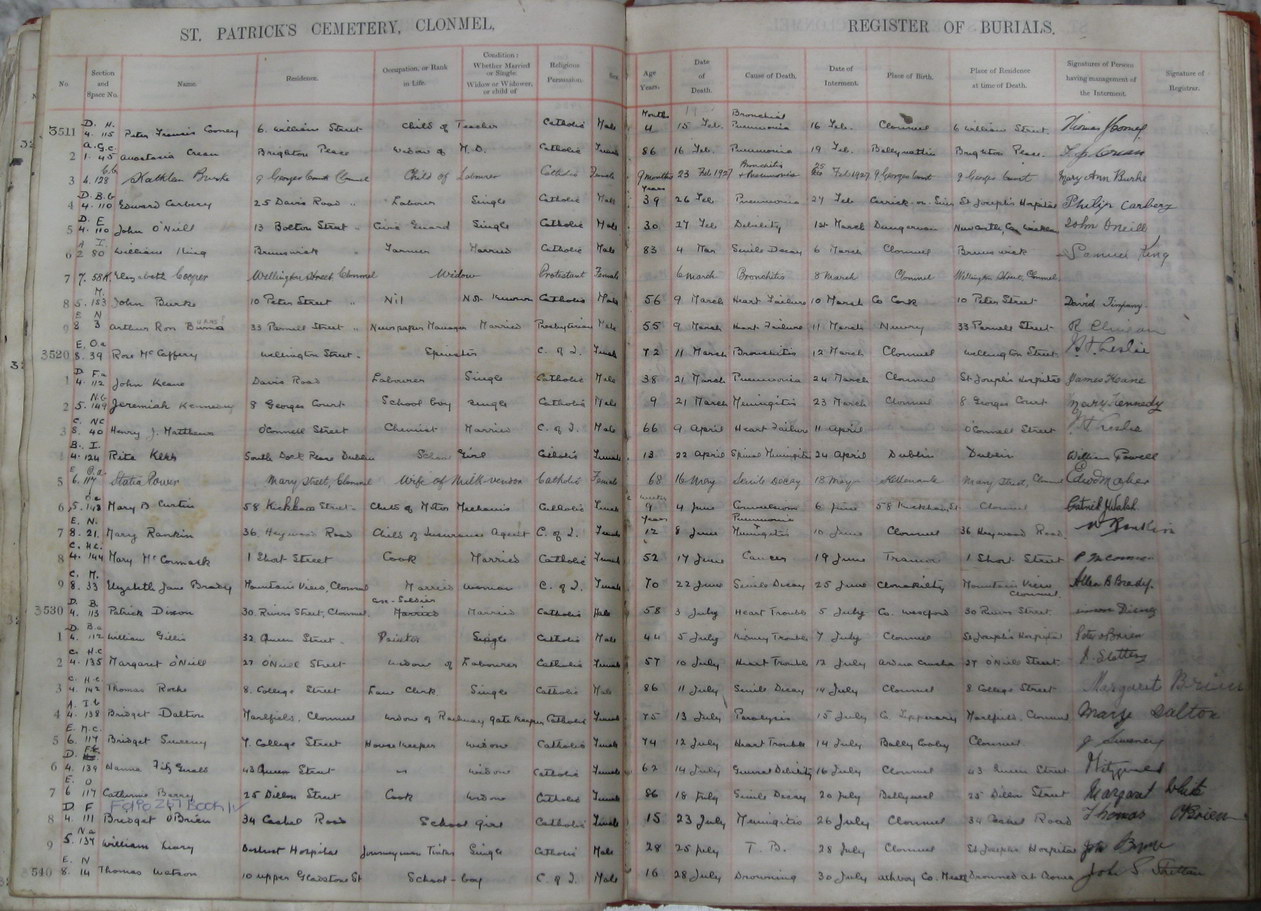 ST. PATRICK'S CEMETERY, CLONMEL. REGISTER OF BURIALS.
No. Section and Space No. Name. Residence. Occupation, or Rank in Life. Condition: Whether Married or Single Widow or Widower, or child of Religious Persuasion. Sex. Age Years. Date of Death. Cause of Death. Date of Interment. Place of Birth. Place of Residence at time of Death. Signatures of Person having management of the Interment. Signature of Registrar.
3511 D. H. 4. 115 Peter Francis Cooney 6. William Street Child of Teacher Catholic Male Months 4 15 Feb. Bronchial Pneumonia 16 Feb. Clonmel 6 William Street Thomas Cooney
2 A. G.c 1. 45 Anastasia Crean Brighton Place Widow of M.D. Catholic Female 86 16 Feb. Pneumonia 19 Feb. Brighton Place.
3 4. 128 Kathleen Burke 9 Georges Court Clonmel Child of Labourer Catholic Female 9 months 23 Feb 1927 Bronchitis & Pneumonia 25 Feb 1927 9 Georges Court 9 Georges Court Mary Ann Burke
4 D. B.G 4. 110 Edward Carbery 25 Davis Road " Labourer Single Catholic Male Years 39 26 Feb Pneumonia 27 Feb Carrick-on-Suir St Joseph's Hospital Philip Carbery
5 D. E 4. 110 John O'Neill 13 Bolton Street " Civic Guard Single Catholic Male 30. 27 Feb Debility 1st March Dungarvan Newcastle, Co. Wicklow John Oneill
6 A I. 2 80 William King Brunswick " Farmer Married Catholic Male 83 4 Mar Senile Decay 6 March Clonmel Brunswick Samuel King
7 7. 58K Elizabeth Cooper Wellington Street Clonmel Widow Protestant Female 6 March Bronchitis 8 March Clonmel Wellington Street, Clonmel
8 M. 5. 153 John Burke 10 Peter Street " Nil Not Known Catholic Male 56 9 March Heart Failure 10 March Co Cork 10 Peter Street David Timpany
9 E N 8 3 Arthur Ron Burns 33 Parnell Street " Newspaper Manager Married Presbyterian Male 55 9 March Heart Failure 11 March Newry 33 Parnell Street
3520 E. O.a 8. 39 Rose McCaffery Wellington Street. Spinster C. of I. Female 72 11 March Bronchitis 12 March Clonmel Wellington Street Leslie
1 D F.a 4. 112 John Keane Davis Road Labourer Single Catholic Male 38 21 March Pneumonia 24 March Clonmel St Joseph's Hospital James Keane
2 N.G 5. 149 Jeremiah Kennedy 8 Georges Court School boy Single Catholic Male 9 21 March Meningitis 23 March Clonmel 8 Georges Court Mary Kennedy
3 C. N.C 8. 40 Henry J. Matthews O'Connell Street Chemist Married C. of I. Male 66 9 April Heart Failure 11 April O'Connell Street Leslie
4 B. I. 4. 124 Rita Kerr South Dock Place Dublin School Girl Catholic Female 13 22 April Spinal Meningitis 24 April Dublin Dublin William Powell
5 E 6. 117 Statia Power Mary Street, Clonmel Wife of Milk-vendor Catholic Female 68 16 May Senile Decay 18 May Mary Street, Clonmel
6 5. 148 Mary B. Curtin 58 Kickham Street. Child of Motor Mechanic Catholic Female Weeks 9 4 June Convulsions 6 June 58 Kickham St Clonmel Patrick Walsh
7 E. N. 8. 21. Mary Rankin 36 Heywood Road Child of Insurance Agent C. of I. Female Years 12 8 June Pneumonia Meningitis 10 June Clonmel 36 Heywood Road. Rankin
8 C. H.C. 4. 144 Mary McCormack 1 Short Street Cook Married Catholic Female 52 17 June Cancer 19 June Tramore 1 Short Street
9 C. M. 8. 33 Elizabeth Jane Bradley Mountain View, Clonmel Married woman C. of I. Female 70 22 June Senile Decay 25 June Clonakilty Mountain View Clonmel. Allen B Brady.
3530 D. B. 4. 113 Patrick Dixon 30 Rivers Street, Clonmel. Ex-Soldier Married Married Catholic Male 58 3 July Heart Trouble 5 July Co. Wexford 30 Rivers Street.
1 D. B.a 4. 112 William Gillis 32 Queen Street. Painter Single Catholic Male 44 5 July Kidney Trouble 7 July Clonmel St Joseph's Hospital Peter O'Brien
2 C. H.C 4. 135 Margaret O'Neill 27 O'Neill Street Widow of Labourer Catholic Female 57 10 July Heart Trouble 12 July 27 O'Neill Street J. Slattery
3 C. H.C. 4. 142 Thomas Roche 8. College Street Law Clerk Single Catholic Male 86 11 July Senile Decay 14 July Clonmel 8 College Street Margaret Brien
4 A. I.b 4. 138 Bridget Dalton Marlfield, Clonmel Widow of Railway Gate Keeper Catholic Female 75 13 July Paralysis 15 July Co. Tipperary Marlfield, Clonmel Mary Dalton
5 E. M.C. 6. 117 Bridget Sweeney 7 College Street Housekeeper Widow Catholic Female 74 12 July Heart Trouble 14 July Clonmel J Sweeney
6 D. 4. 139 Hanna FitzGerald 43 Queen Street Widow Catholic Female 62 14 July General Debility 16 July Clonmel 43 Queen Street Fitzgerald
7 E. O 6 117 Catherine Barry 25 Dillon Street Cook Widow Catholic Female 86 18 July Senile Decay 20 July 25 Dillon Street Margaret White
Folio 267 Book IV
8 D F 4. 111 Bridget O'Brien 34 Cashel Road School girl Catholic Female 15 23 July Meningitis 26 July Clonmel 34 Cashel Road Thomas O'Brien
9 N.a 5. 137 William Leary District Hospital Journeyman Tinker Single Catholic Male 28 25 July T. B. 28 July Clonmel St Josephs Hospital John Byrne
3540 E. N 8. 14 Thomas Watson 10 Upper Gladstone St School-boy C. of I. Male 16 28 July Drowning 30 July Athboy Co. Meath Drowned at